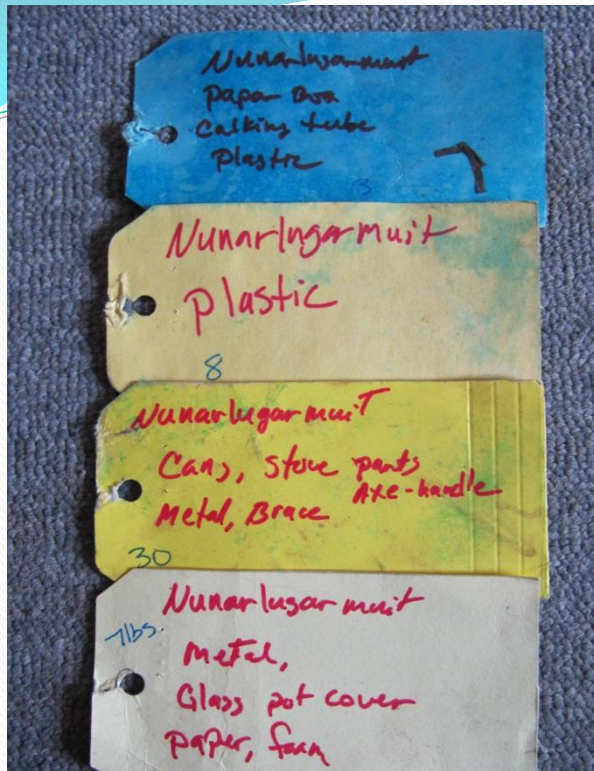 Nunarlugarmuit
Papar Box
Calking tube
Plastic
3
7
Nunarlugarmuit
plastic
8
Nunarlugarmuit
Cans, Stove parts
Axe-handle
Metal, Brace
30
Nunarlugarmuit
7lbs.
Metal,
Glass pot cover
paper, foam